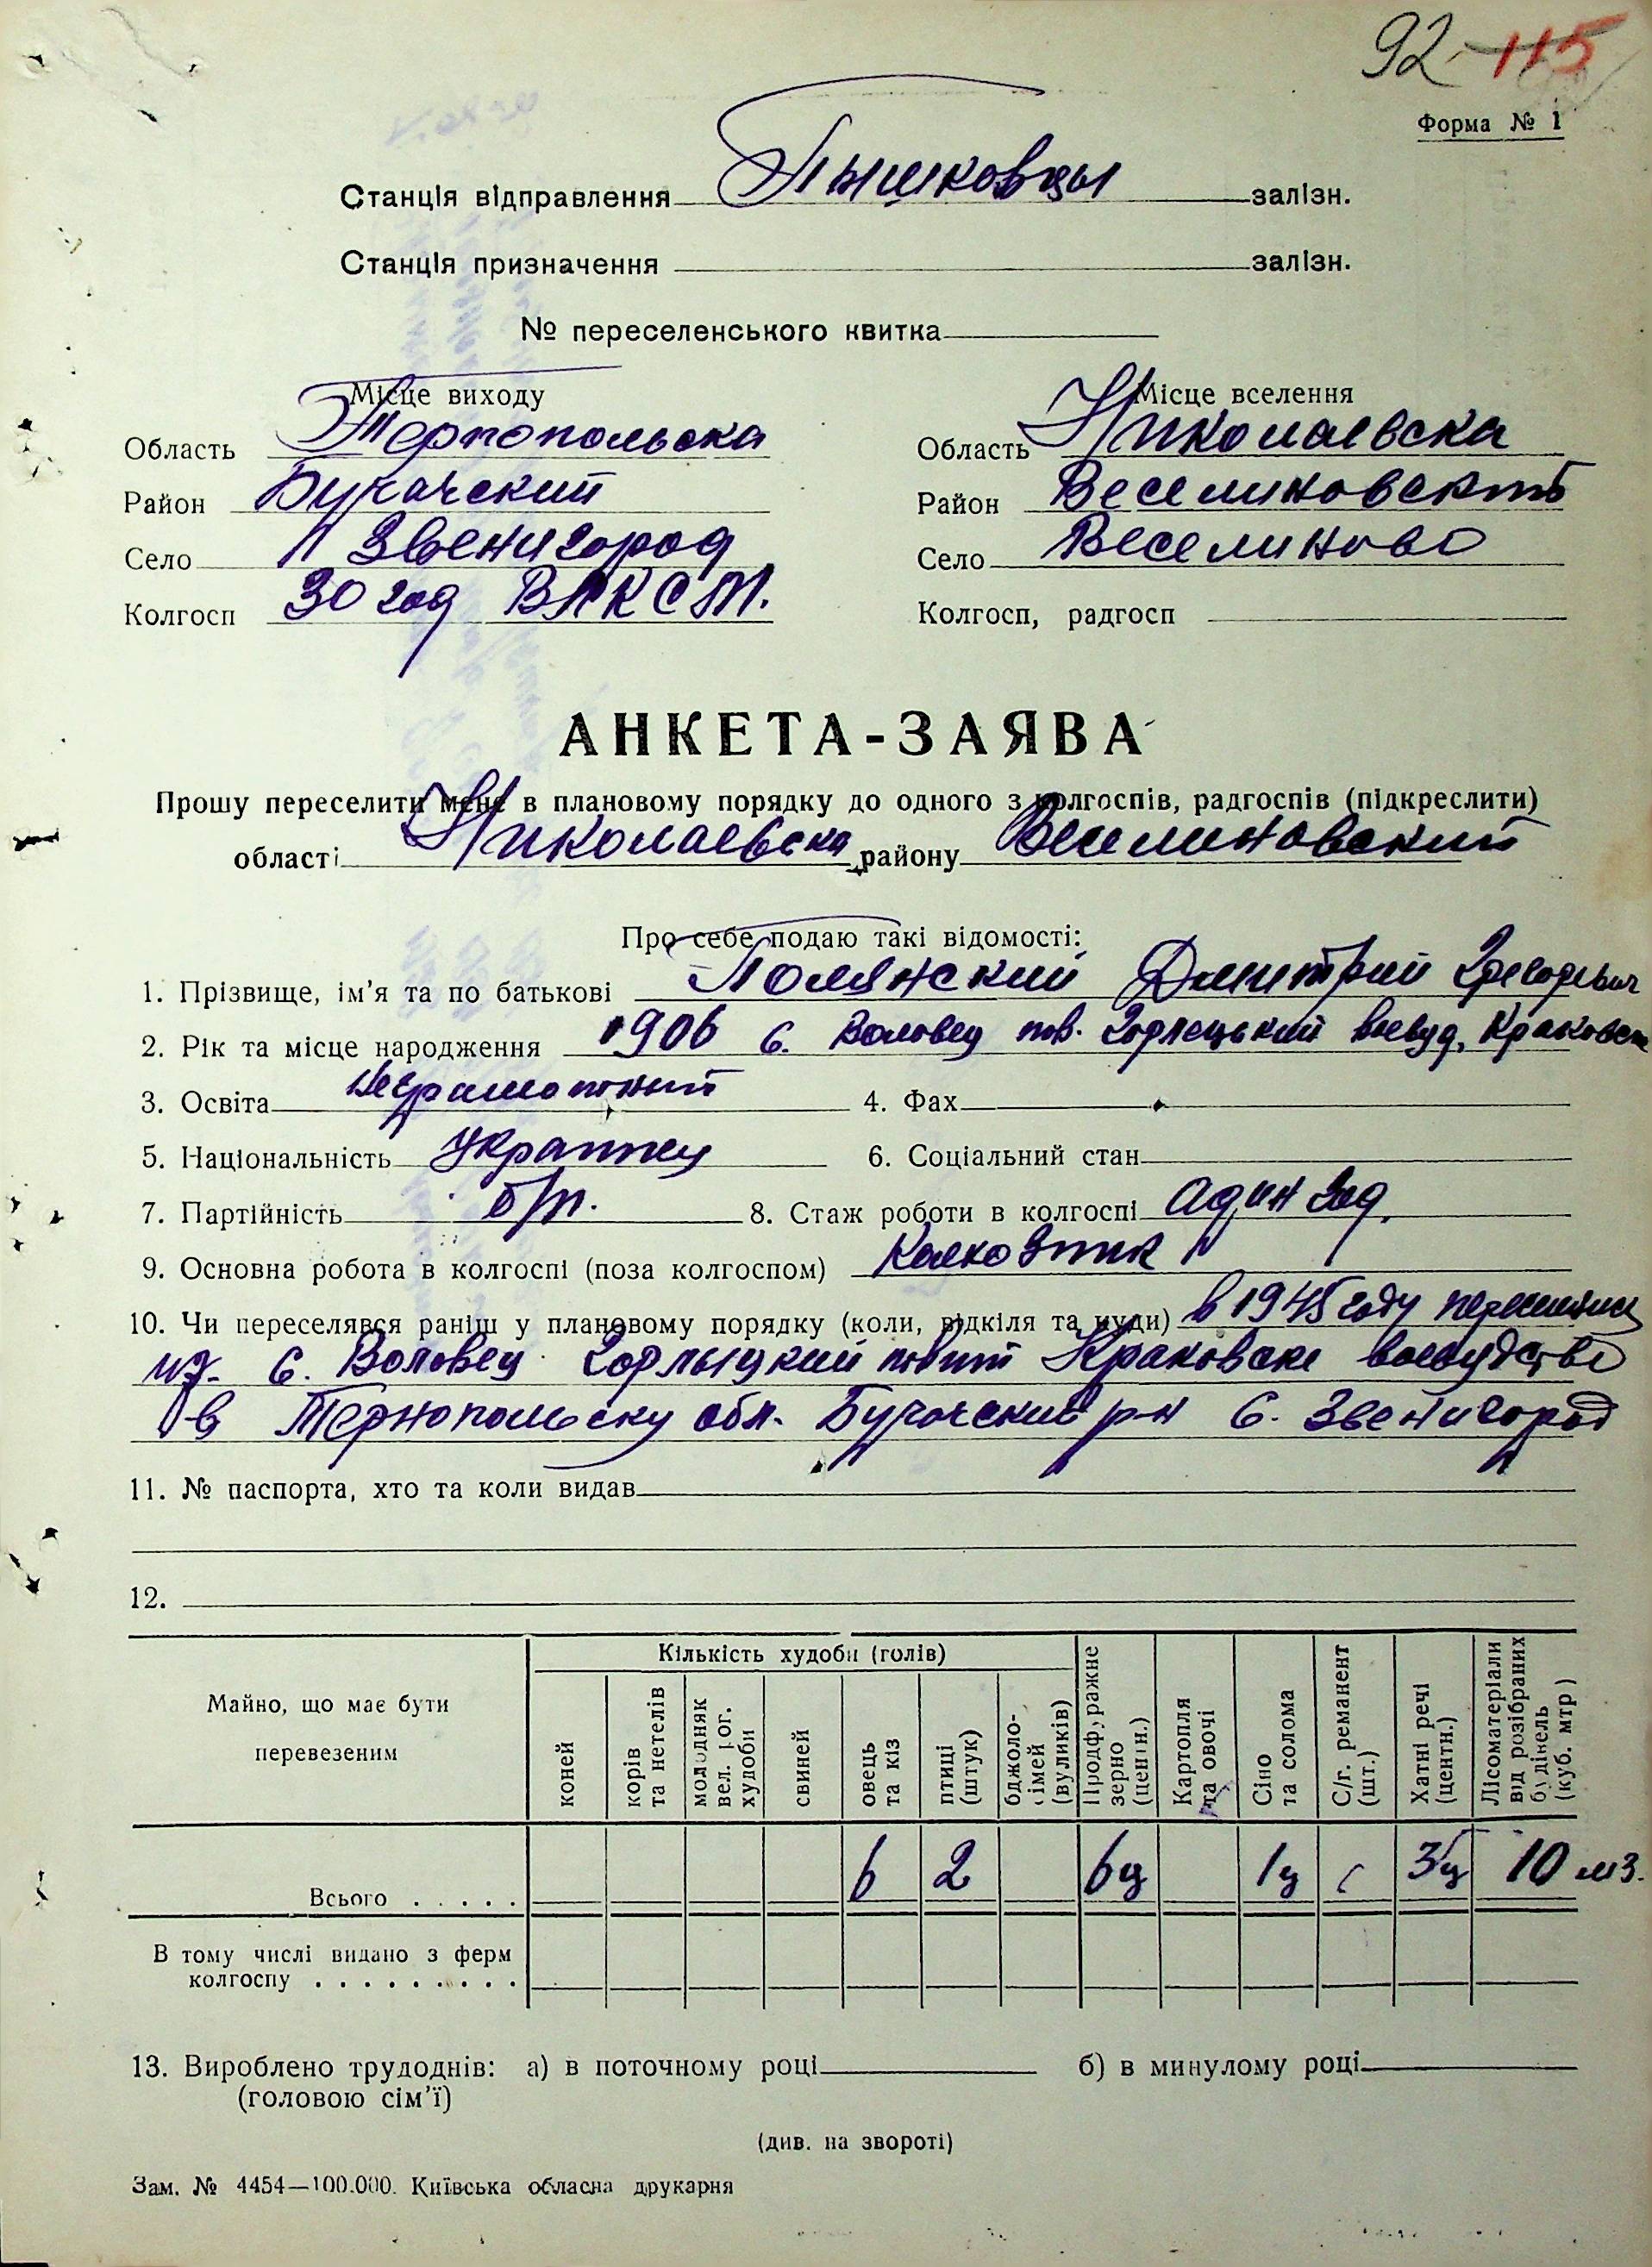 92 115
Форма № 1
Станція відправлення Пышковцы залізн.
Станція призначення залізн.
№ переселенського квитка
Місце виходу Місце вселення
Область Тернопольска Область Николаевска
Район Бучачский Район Веселиновский
Село Звенигород Село Веселиново
Колгосп 30 год ВЛКСМ. Колгосп, радгосп
АНКЕТА-ЗАЯВА
Прошу переселити мене в плановому порядку до одного з колгоспів, радгоспів (підкреслити)
області Николаевска району Веселиновский
Про себе подаю такі відомості:
1. Прізвище, ім'я та по батькові Полянский Дмитрий Григорьевич
2. Рік та місце народження 1906 с. Воловец пов. Горлецький воевуд. Краковск
3. Освіта неграмотный 4. Фах
5. Національність Украинец 6. Соціальний стан
7. Партійність б/п. 8. Стаж роботи в колгоспі Один год.
9. Основна робота в колгоспі (поза колгоспом) Колхозник
10. Чи переселявся раніш у плановому порядку (коли, відкіля та куди) в 1945 году
из с. Воловец Горлыцкий повит Краковске воевудство
в Тернопольску обл. Бучачский р-н с. Звенигород
11. № паспорта, хто та коли видав
12.
Майно, що має бути перевезеним
Кількість худоби (голів)
коней
корів та нетелів
молодняк вел. рог. худоби
свиней
овець та кіз
птиці (штук)
бджоло-сімей (вуликів)
Продфуражне зерно (центн.)
Картопля та овочі
Сіно та солома
С/г. реманент (шт.)
Хатні речі (центн.)
Лісоматеріали від розібраних будівель (куб. мтр)
Всього . . . . . 6 2 6ц 1ц 3ц 10 м3.
В тому числі видано з ферм
колгоспу . . . . . . . . .
13. Вироблено трудоднів: а) в поточному році б) в минулому році
(головою сім'ї)
(див. на звороті)
Зам. № 4454—100.000. Київська обласна друкарня